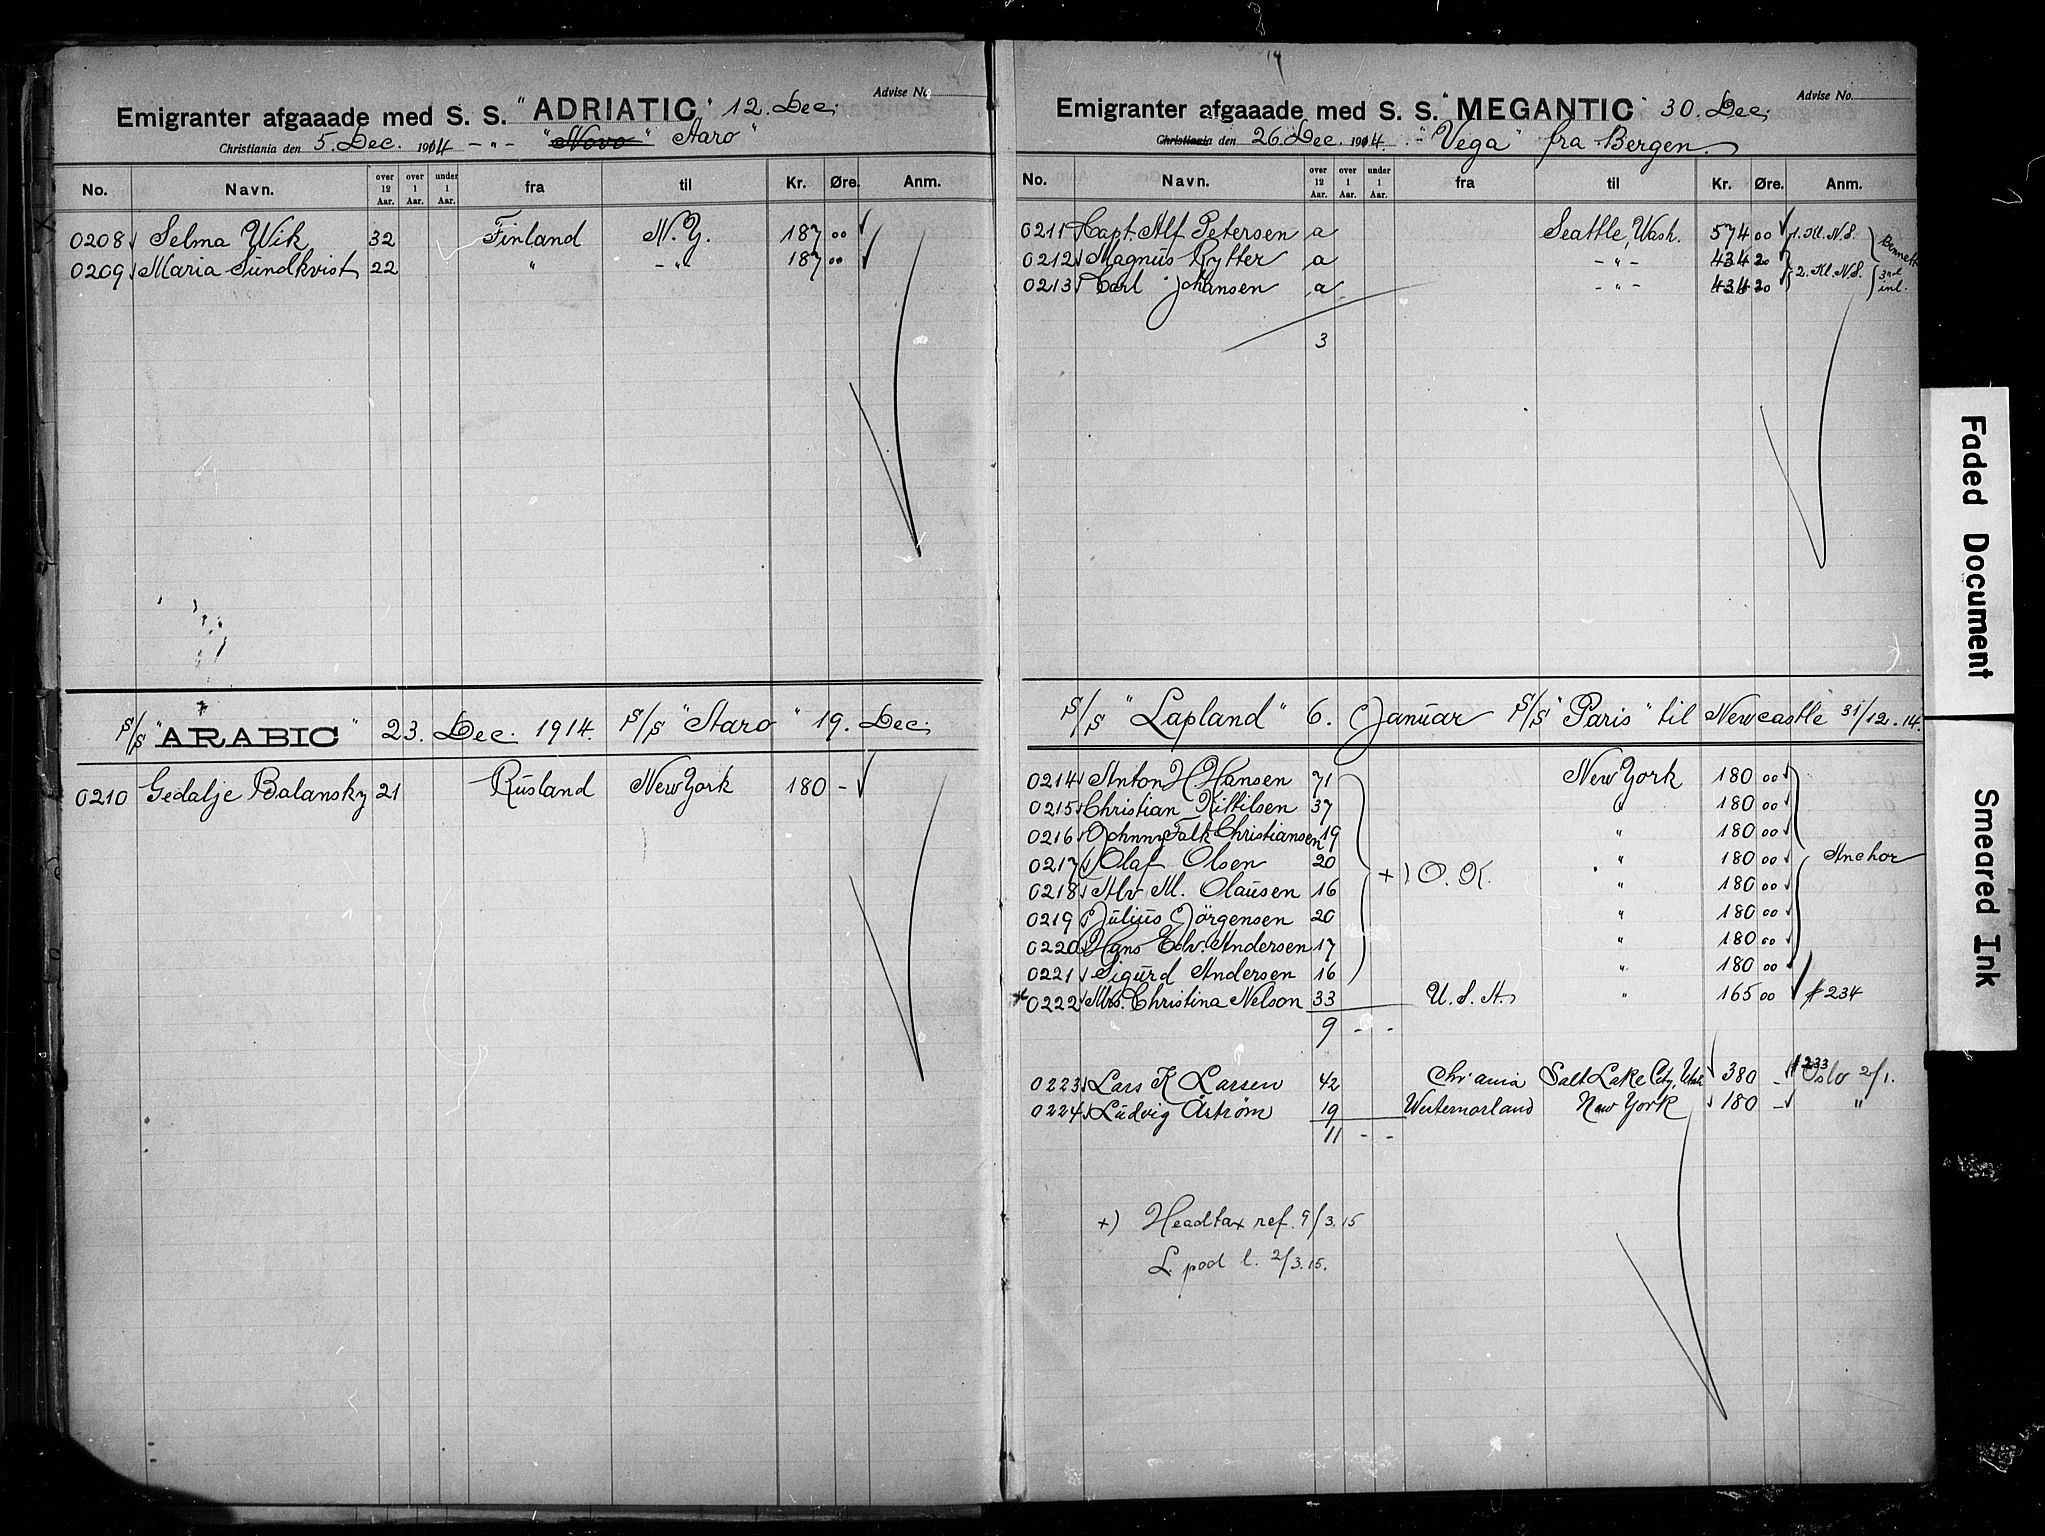 Advise No.
Emigranter afgaaade med S. S. "ADRIATIC" 12. Dec.
Christiania den 5. Dec. 1914 - " - "Novo" Aaro"
No. Navn. over 12 Aar. over 1 Aar. under 1 Aar. fra til Kr. Øre. Anm.
0208 Selma Wik 32 Finland N.Y. 187 00
0209 Maria Sundkvist 22 " - " - 187 00
S/S "ARABIC" 23. Dec. 1914. S/S "Aaro" 19. Dec.
0210 Gedalje Balansky 21 Rusland New York 180 -
14
Advise No.
Emigranter afgaaade med S. S. "MEGANTIC" 30. Dec.
Christiania den 26. Dec. 1914. "Vega" fra Bergen.
No. Navn. over 12 Aar. over 1 Aar. under 1 Aar. fra til Kr. Øre. Anm.
0211 Capt. Alf Petersen a Seattle, Wash. 574 00 1. Kl. N.S. Bennett
0212 Magnus Rytter a - " - 434 20
0213 Carl Johansen a - " - 434 20 2. Kl. N.S. inl.
3
S/S "Lapland" 6. Januar S/S "Paris" til Newcastle 31/12.14.
0214 Anton H Hansen 71 New York 180 00
0215 Christian Kittilsen 37 " 180 00
0216 Johnny Falk Christiansen 19 " 180 00
0217 Olaf Olsen 20 " 180 00 Anchor
0218 Alv M. Olausen 16 +) O. K. " 180 00
0219 Julius Jörgensen 20 " 180 00
0220 Hans Edv. Andersen 17 " 180 00
0221 Sigurd Andersen 16 " 180 00
0222 Mrs. Christina Nelson 33 U. S. A. " 165 00 # 234
9 - -
0223 Lars K Larsen 42 Chr'ania Salt Lake City, Utah 380 - # 233 Oslo 2/1.
0224 Ludvig Åström 19 Westernorland New York 180 - "
11 - -
+) Headtax ref. 9/3.15
L. pod l. 2/3.15.
Faded Document
Smeared Ink